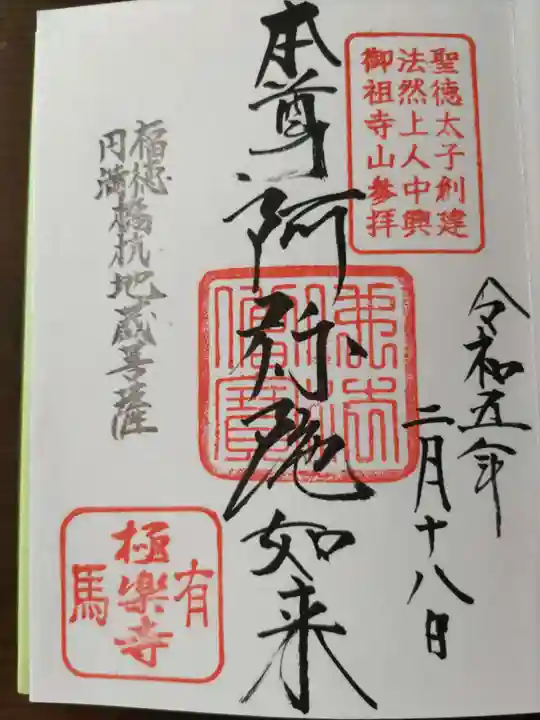 聖徳太子創建
法然上人中興
御祖寺山参拝
令和五年
二月十八日
本尊阿弥陀如来
福徳
円満
橋杭地蔵菩薩
有馬
極楽寺